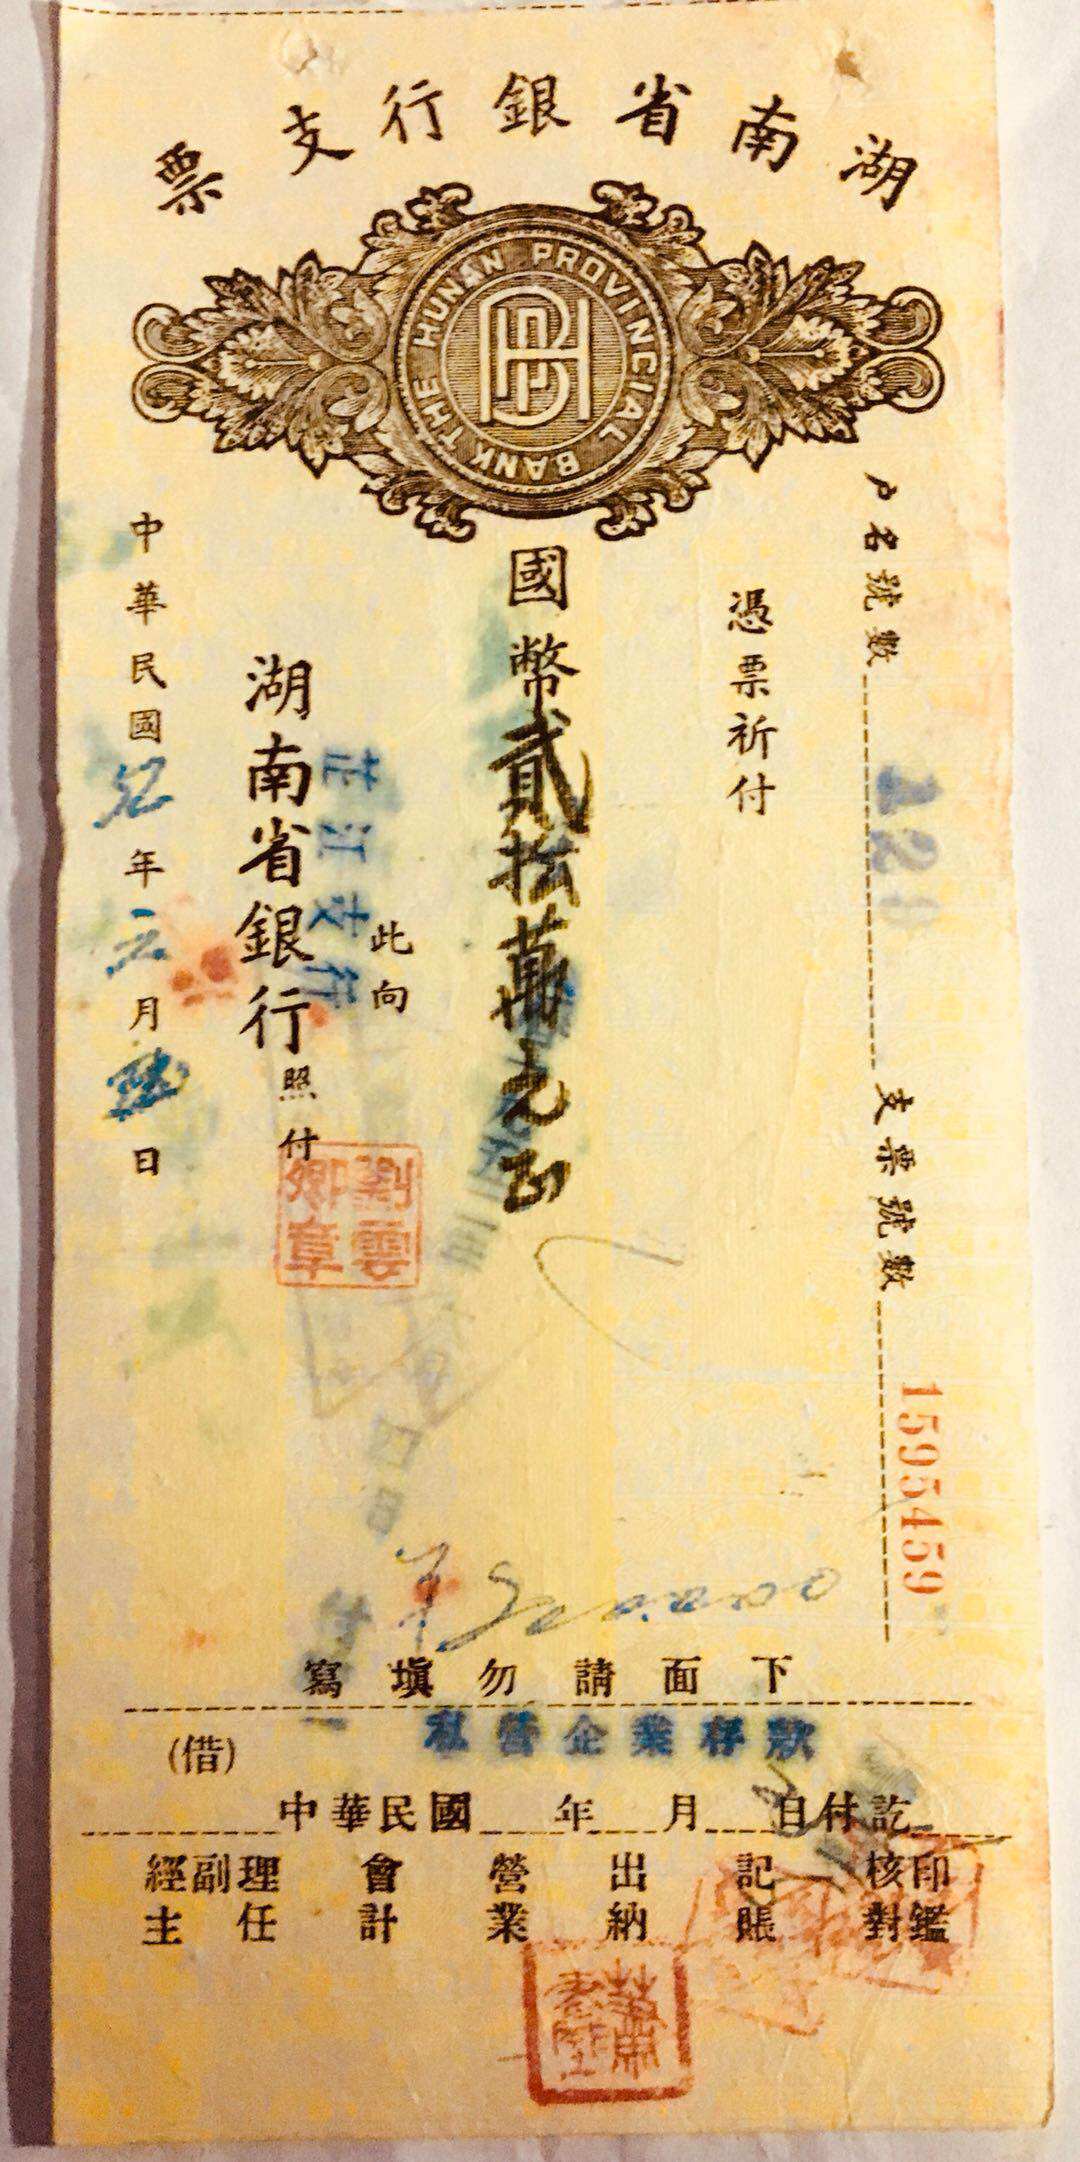 湖南省銀行支票
THE HUNAN PROVINCIAL BANK
戶名號數
支票號數 1595459
憑票祈付
國幣貳拾萬元正
此向
芷江支行
湖南省銀行照付
劉雲卿章
中華民國 年 元月 日
下面請勿填寫
(借) 私營企業存款
中華民國 年 月 日付訖
經副理 會 營 出 記 核印
主任 計 業 納 賬 對鑑